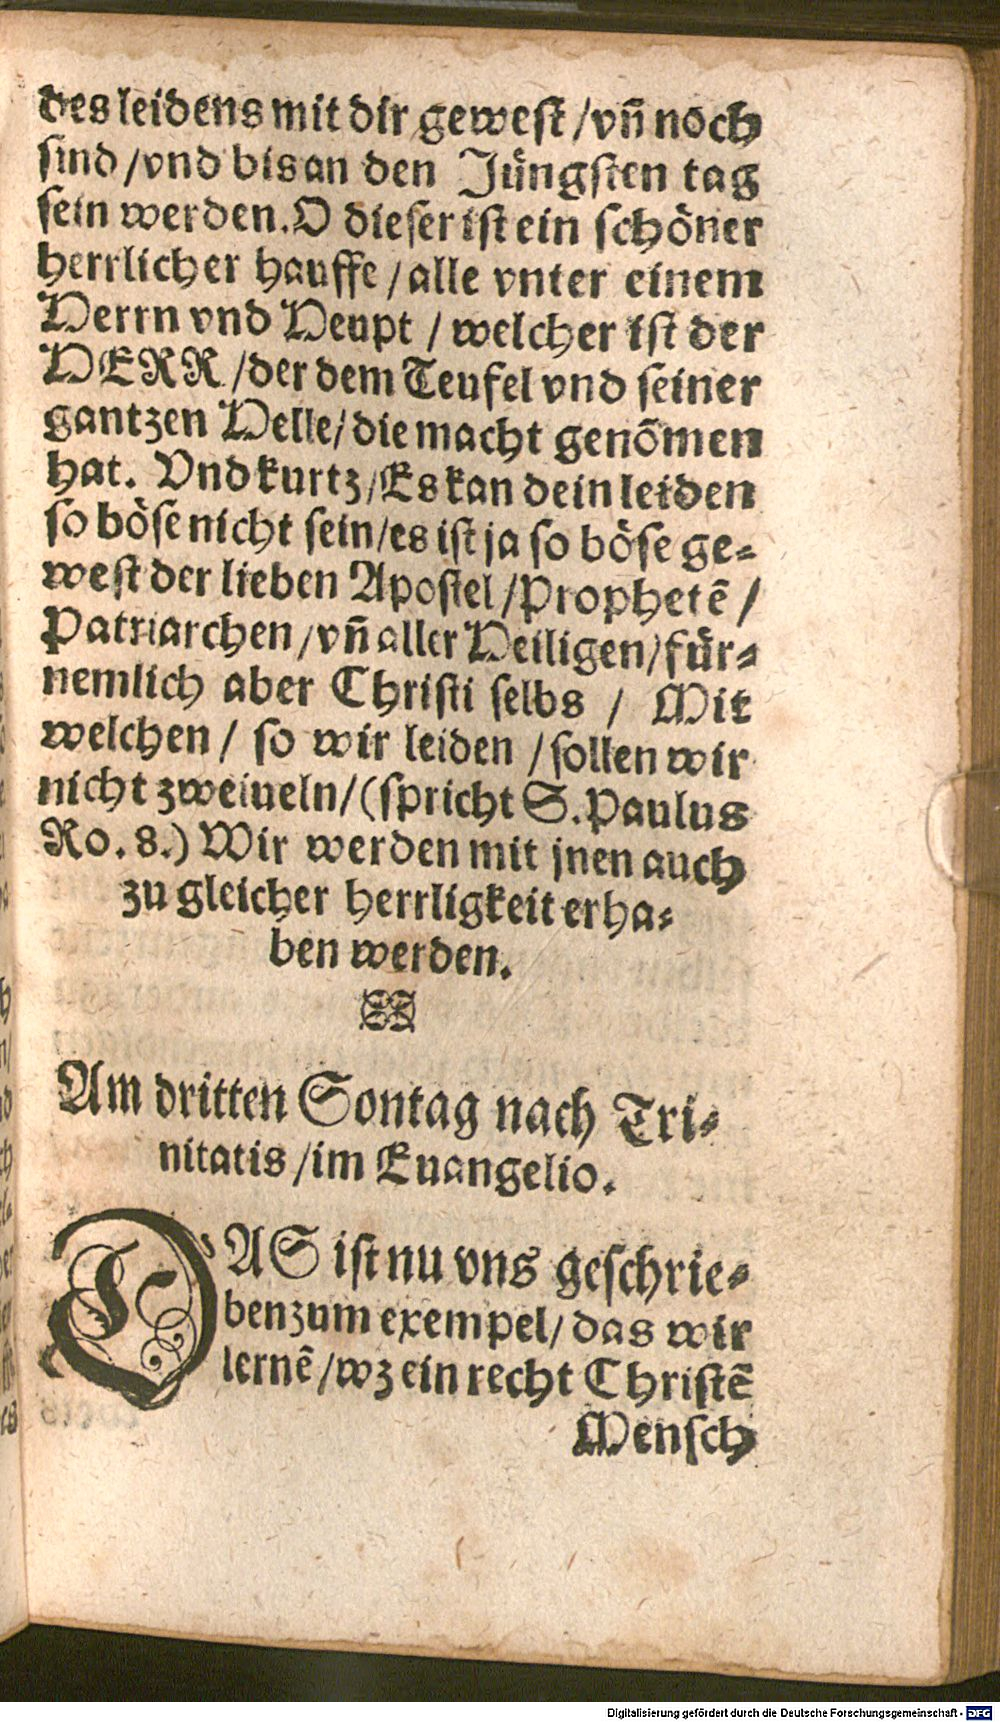 des leidens mit dir gewest / vn̄ noch
sind / vnd bis an den Jüngsten tag
sein werden. O dieser ist ein schöner
herrlicher hauffe / alle vnter einem
Herrn vnd Heupt / welcher ist der
HERR / der dem Teufel vnd seiner
gantzen Helle / die macht genõmen
hat. Vnd kurtz / Es kan dein leiden
so böse nicht sein / es ist ja so böse ge-
west der lieben Apostel / Prophetẽ /
Patriarchen / vn̄ aller Heiligen / für-
nemlich aber Christi selbs / Mit
welchen / so wir leiden / sollen wir
nicht zweiueln / (spricht S. Paulus
Ro. 8.) Wir werden mit jnen auch
zu gleicher herrligkeit erha-
ben werden.
Am dritten Sontag nach Tri-
nitatis / im Euangelio.
DAS ist nu vns geschrie-
ben zum exempel / das wir
lernẽ / wz ein recht Christẽ
Mensch
Digitalisierung gefördert durch die Deutsche Forschungsgemeinschaft - DFG